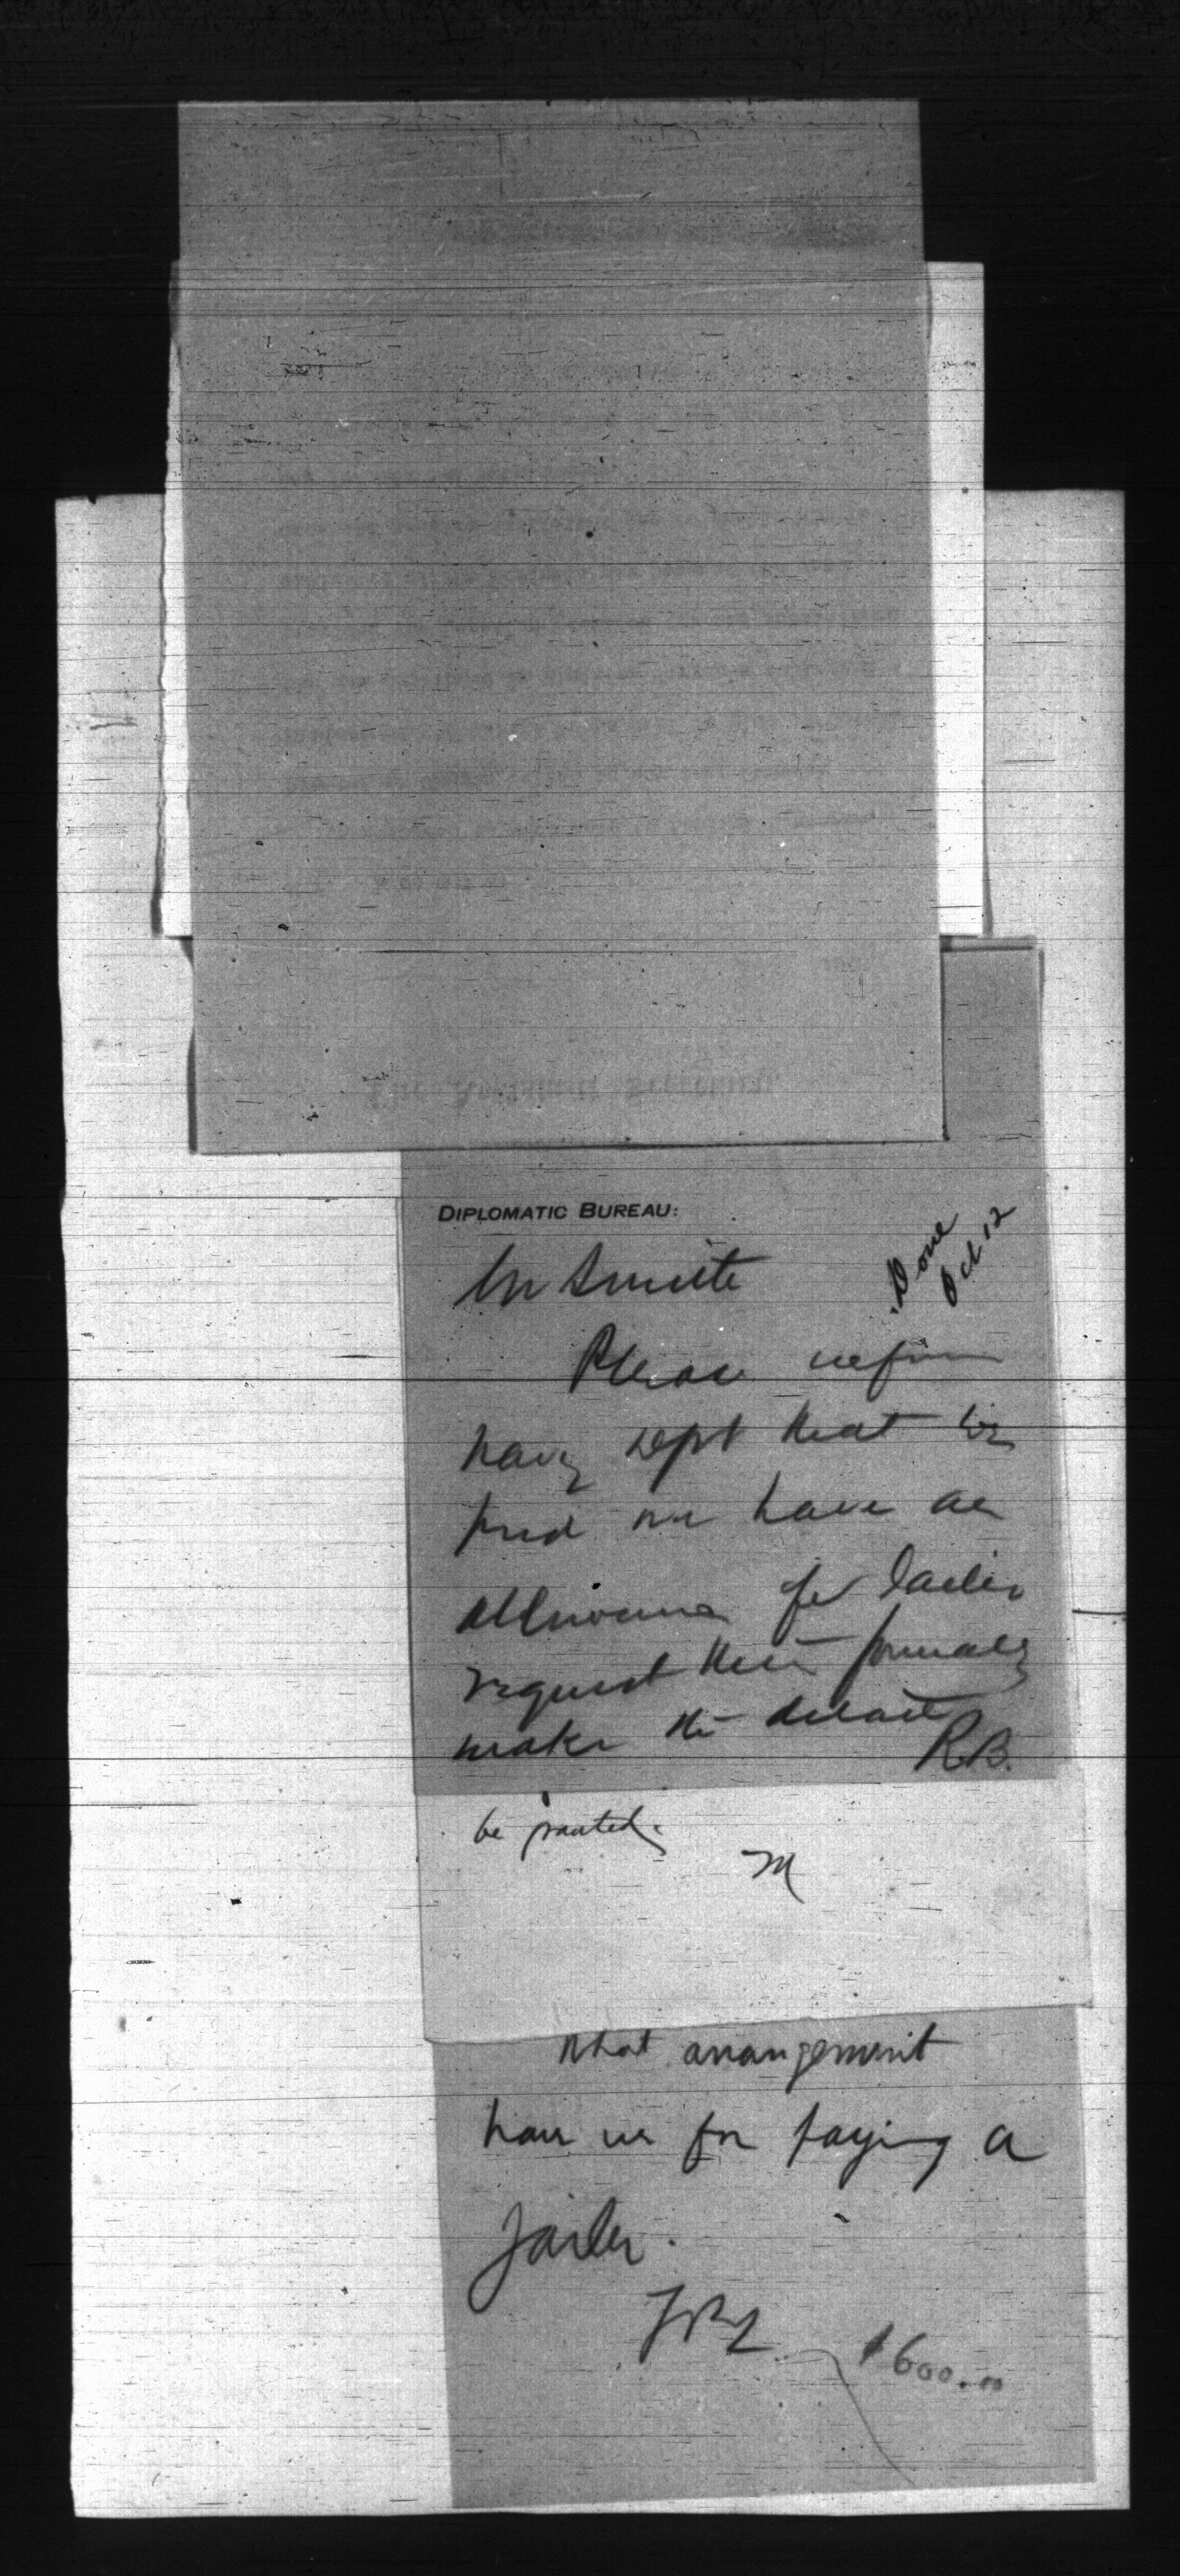 DIPLOMATIC BUREAU:
Done
Oct 12
Mr Smith
Please inform
Navy Dept that we
find we have an
allowance for jailer
request them formally
make the detail
R.B.
be granted.
M
What arrangement
have we for paying a
Jailer.
$600.00